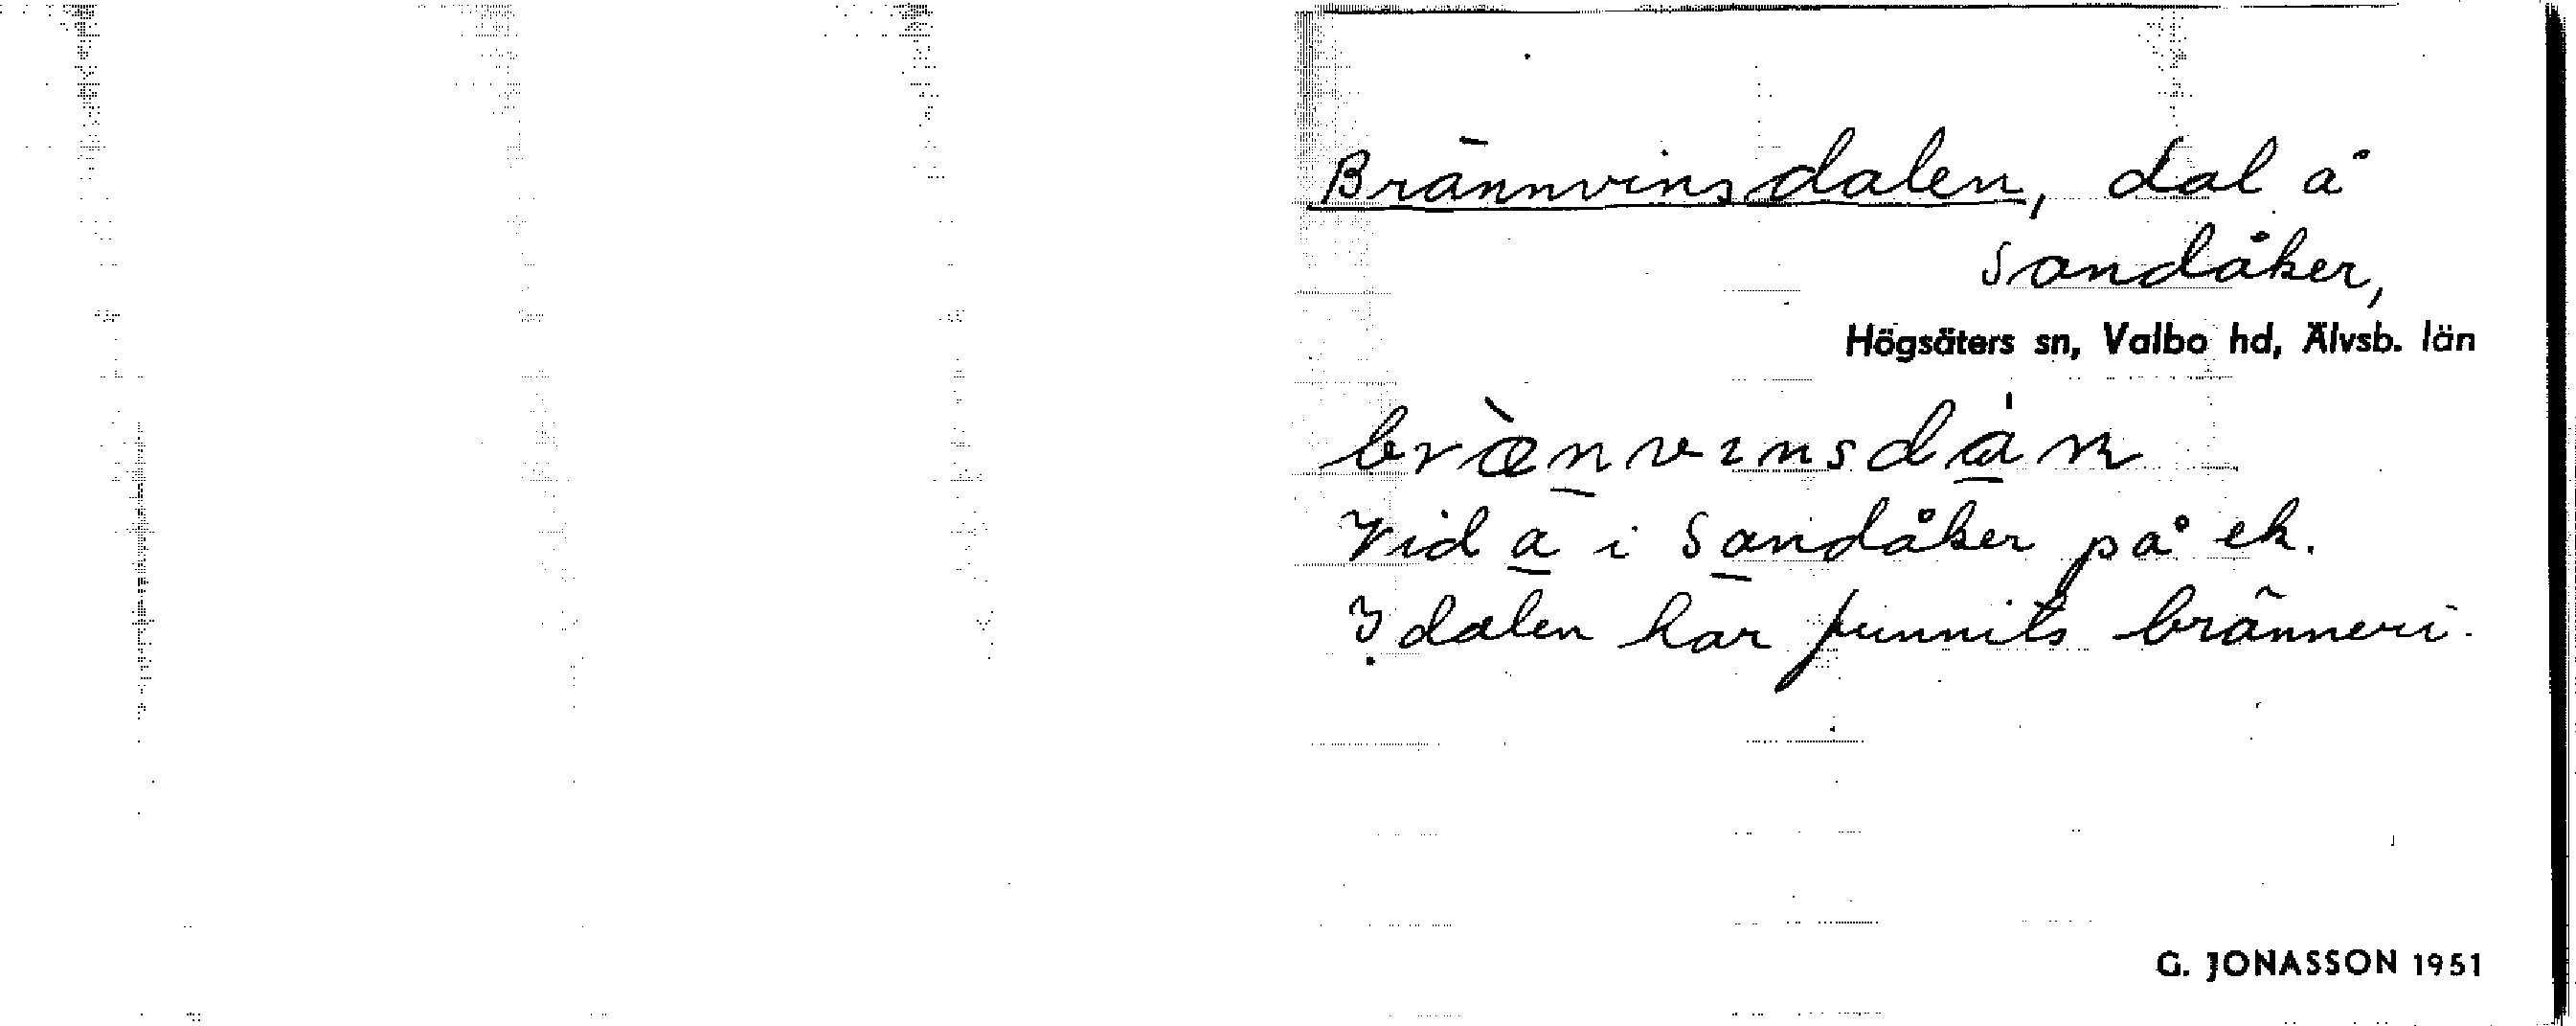 Brännvinsdalen, dal å
Sandåker,
Högsäters sn, Valbo hd, Älvsb. län
bræ̀nvinsdan
Vid a i Sandåker på ek.
I dalen har funnits bränneri.
G. JONASSON 1951